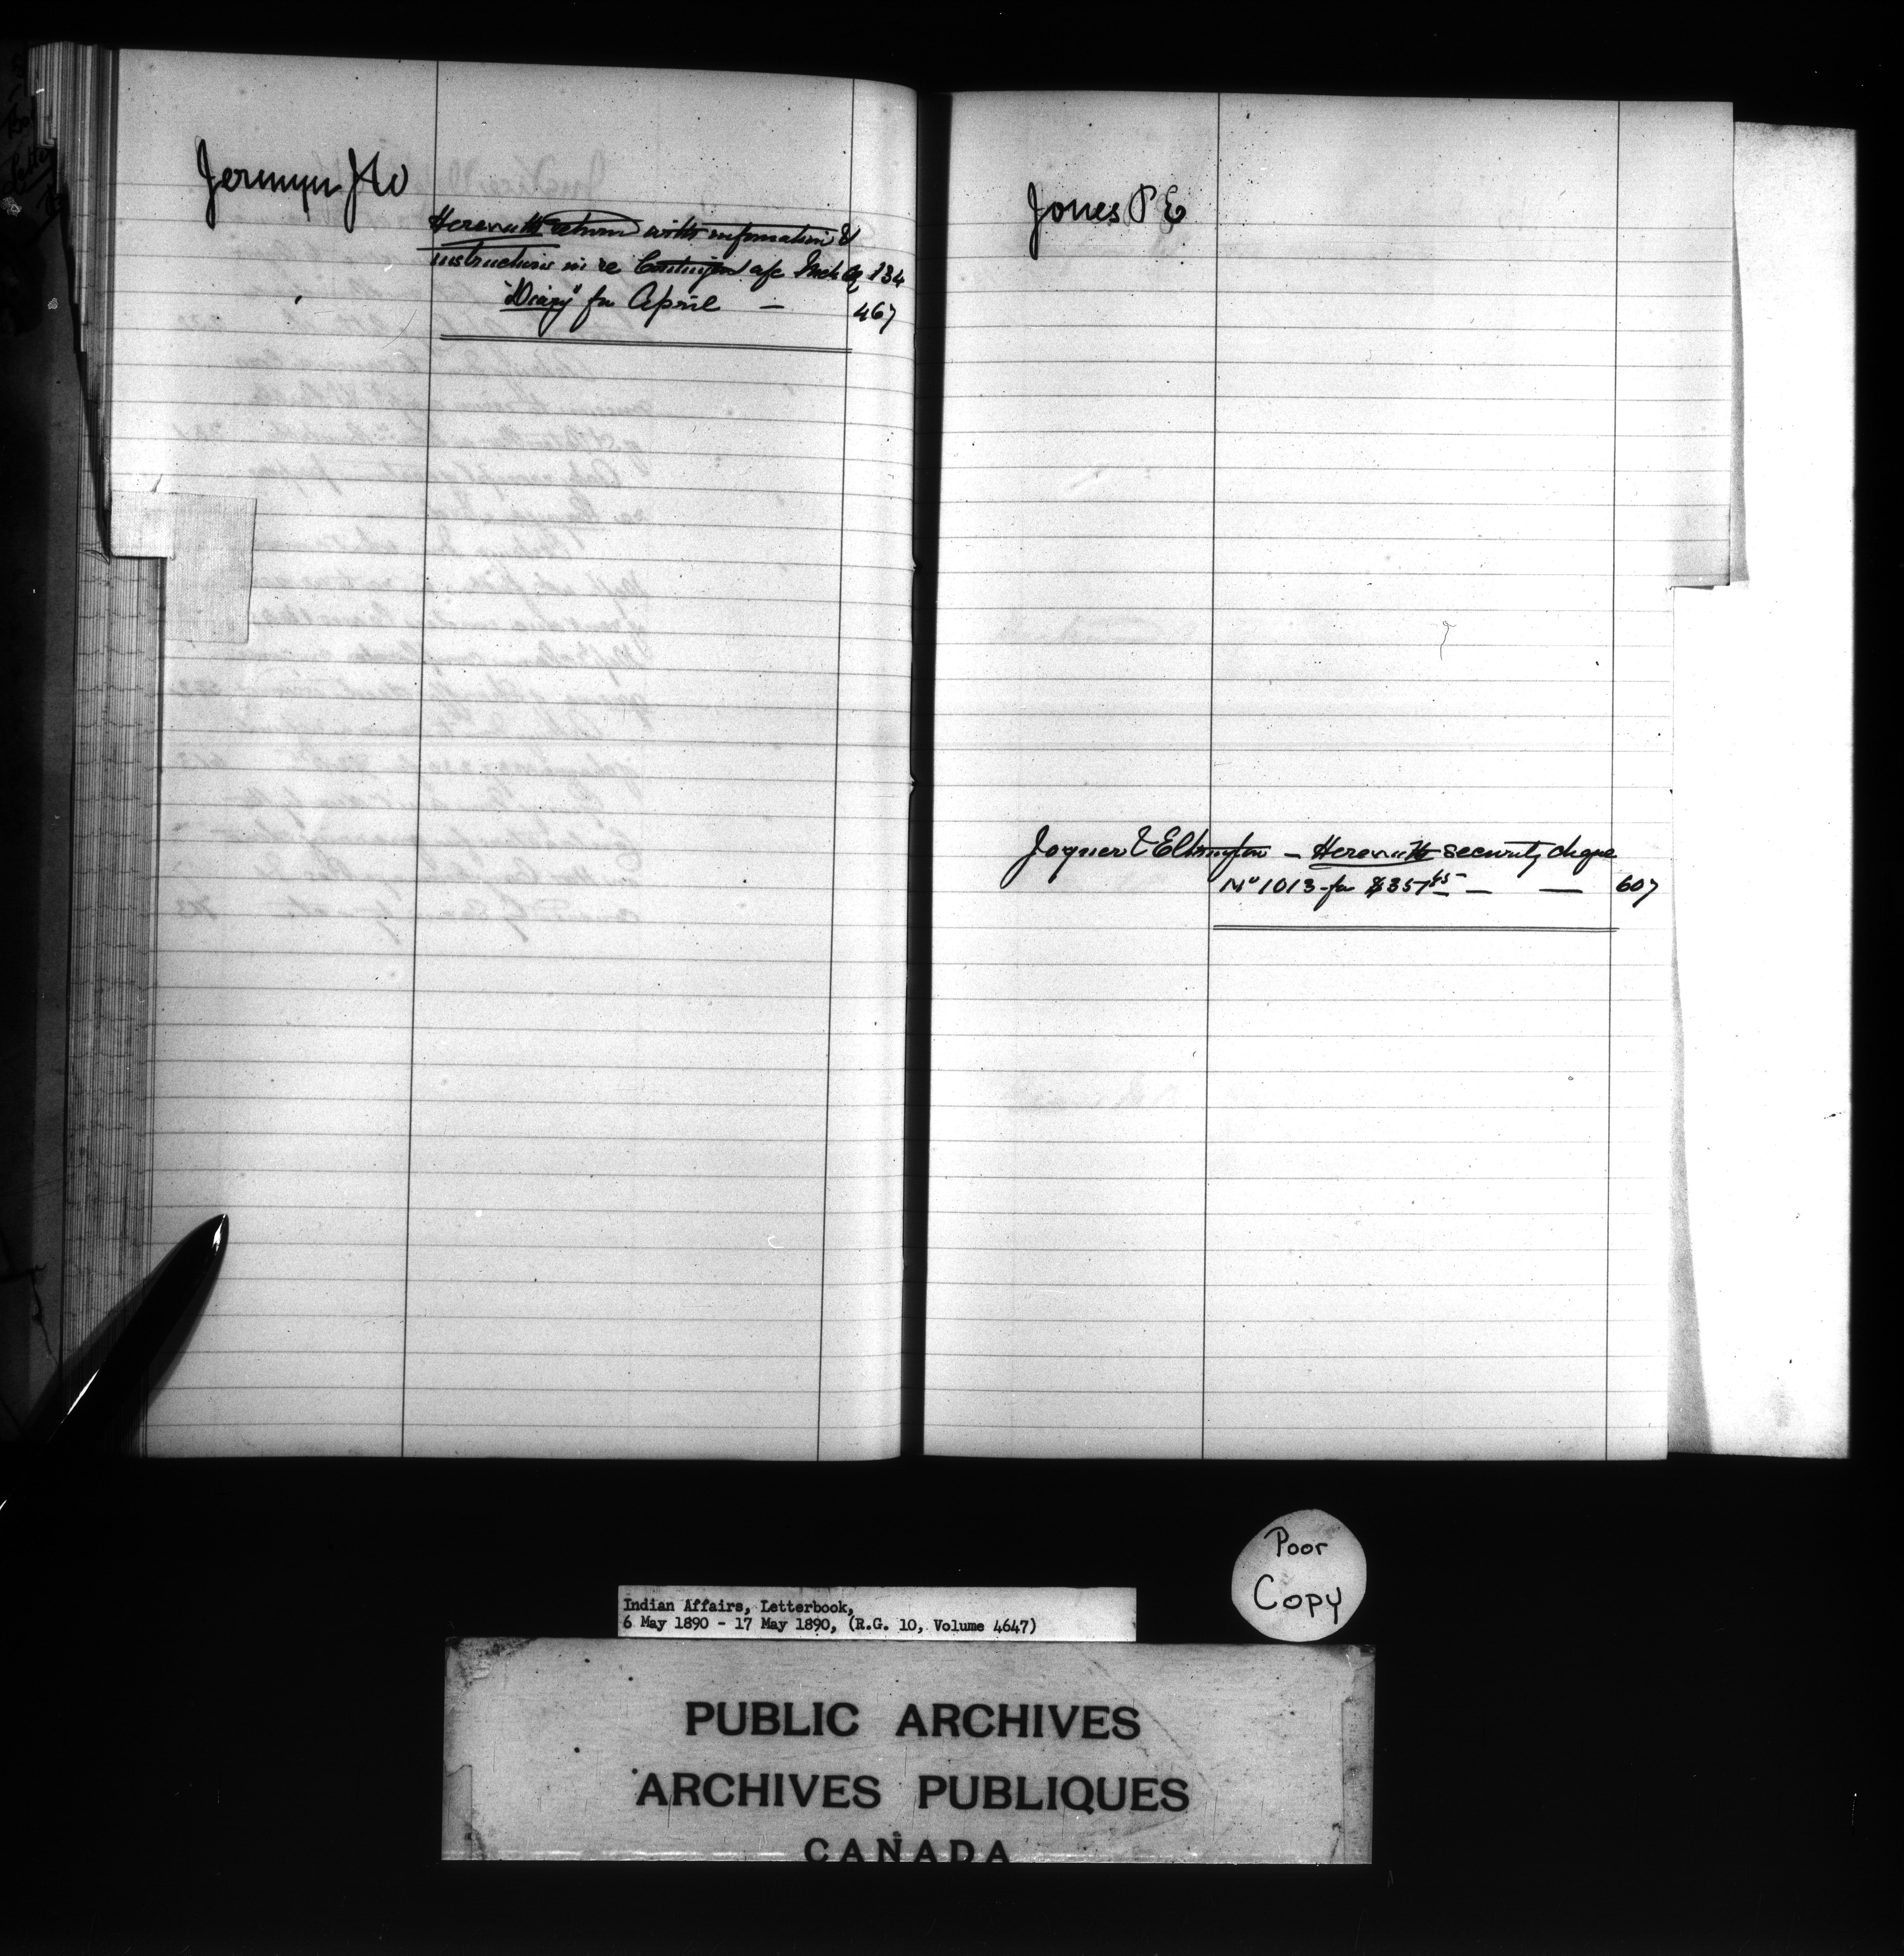 Jermyn J W
Herewith return with information &
instructions in re Contingent a/c March Qr 134
"Diary" for April — 467
Jones P E
Joyner & Elkington — Herewith security cheque
No 1013 for $357 45 — — 607
Poor
Copy
Indian Affairs, Letterbook,
6 May 1890 - 17 May 1890, (R.G. 10, Volume 4647)
PUBLIC ARCHIVES
ARCHIVES PUBLIQUES
CANADA